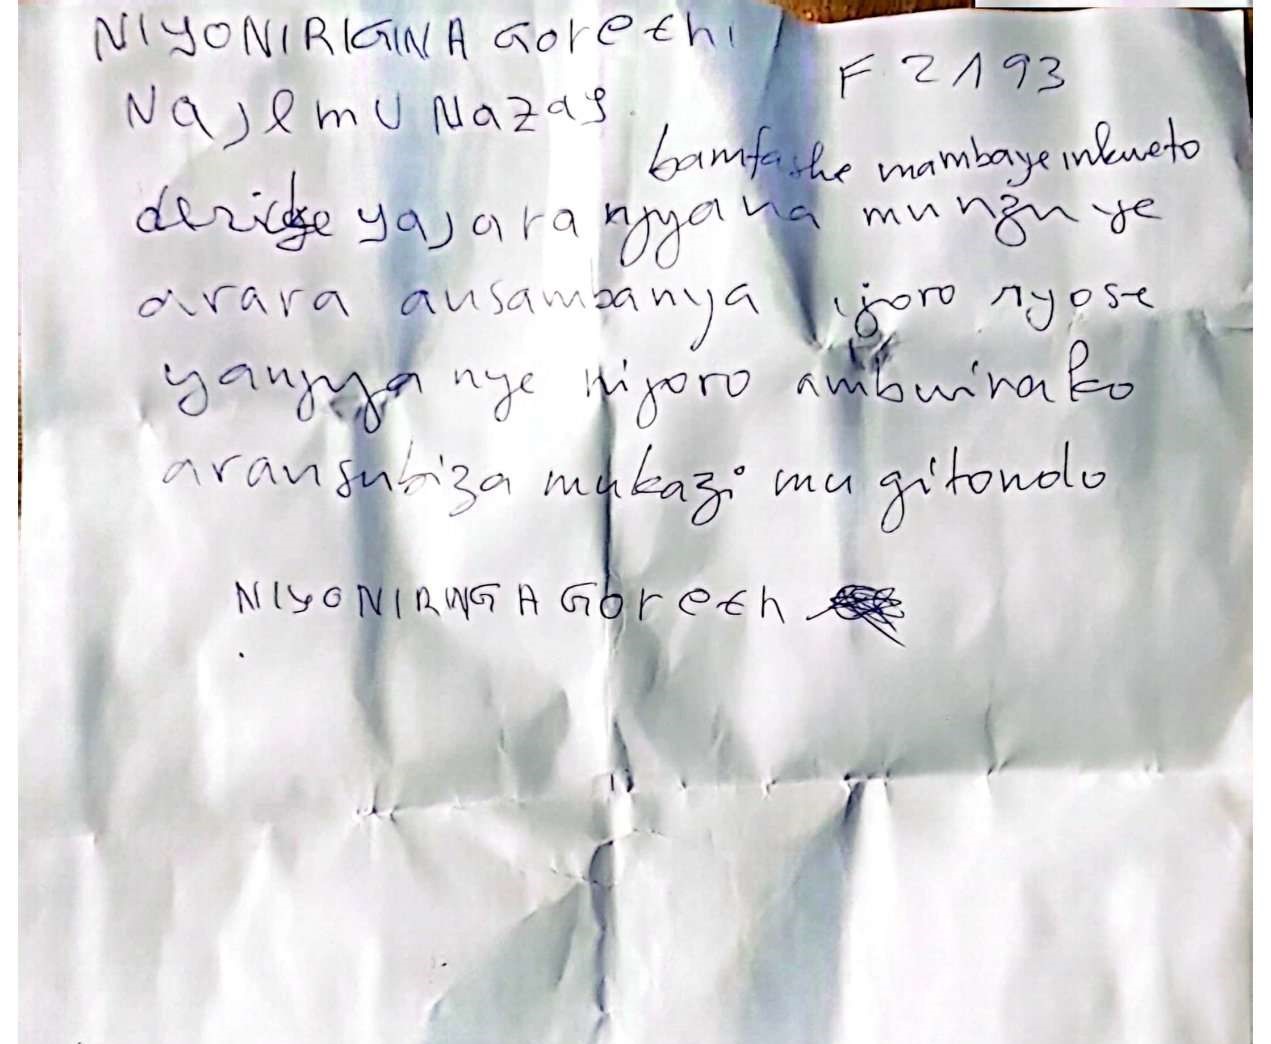 NIYONIRIGINA Gorethi
F 2193
Najemu Nazas.
bamfashe mambaye inkweto
yajara njyana munzu ye
arara ausambanya ijoro ryose
yanjya nye nijoro ambwirako
aransubiza mukazi mu gitondo
NIYONIRINGA Goreth